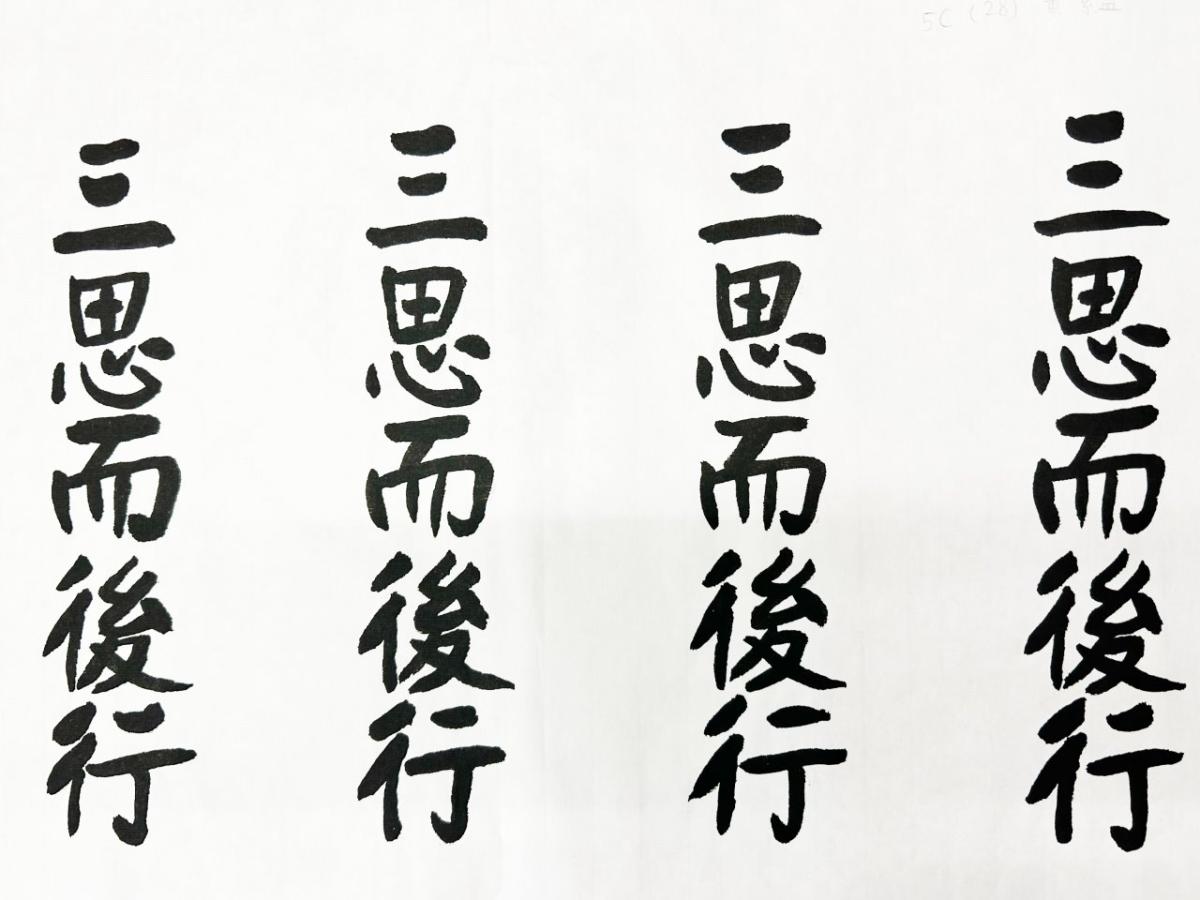 5C (28)
三思而後行
三思而後行
三思而後行
三思而後行